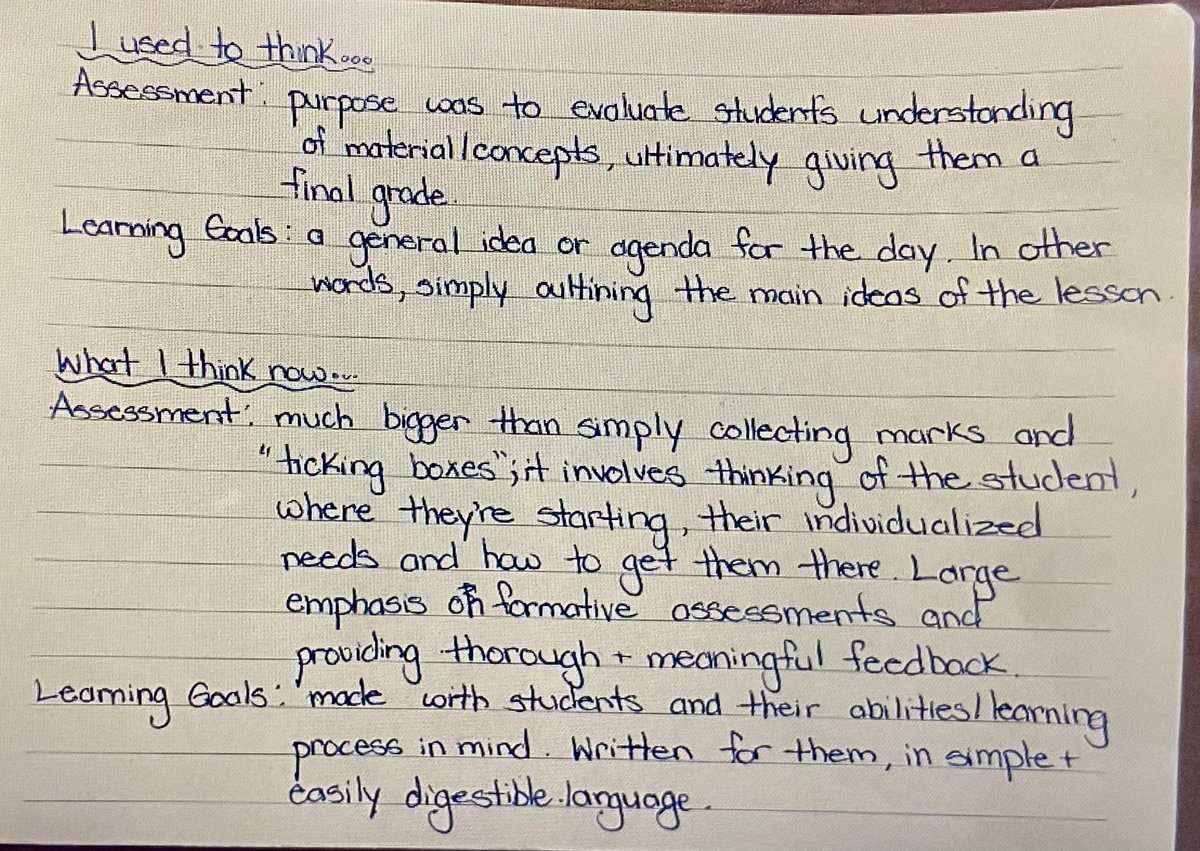 I used to think...
Assessment: purpose was to evaluate student's understanding
of material/concepts, ultimately giving them a
final grade.
Learning Goals: a general idea or agenda for the day. In other
words, simply outlining the main ideas of the lesson.
What I think now...
Assessment: much bigger than simply collecting marks and
"ticking boxes"; it involves thinking of the student,
where they're starting, their individualized
needs and how to get them there. Large
emphasis on formative assessments and
providing thorough + meaningful feedback.
Learning Goals: made with students and their abilities/learning
process in mind. Written for them, in simple +
easily digestible language.